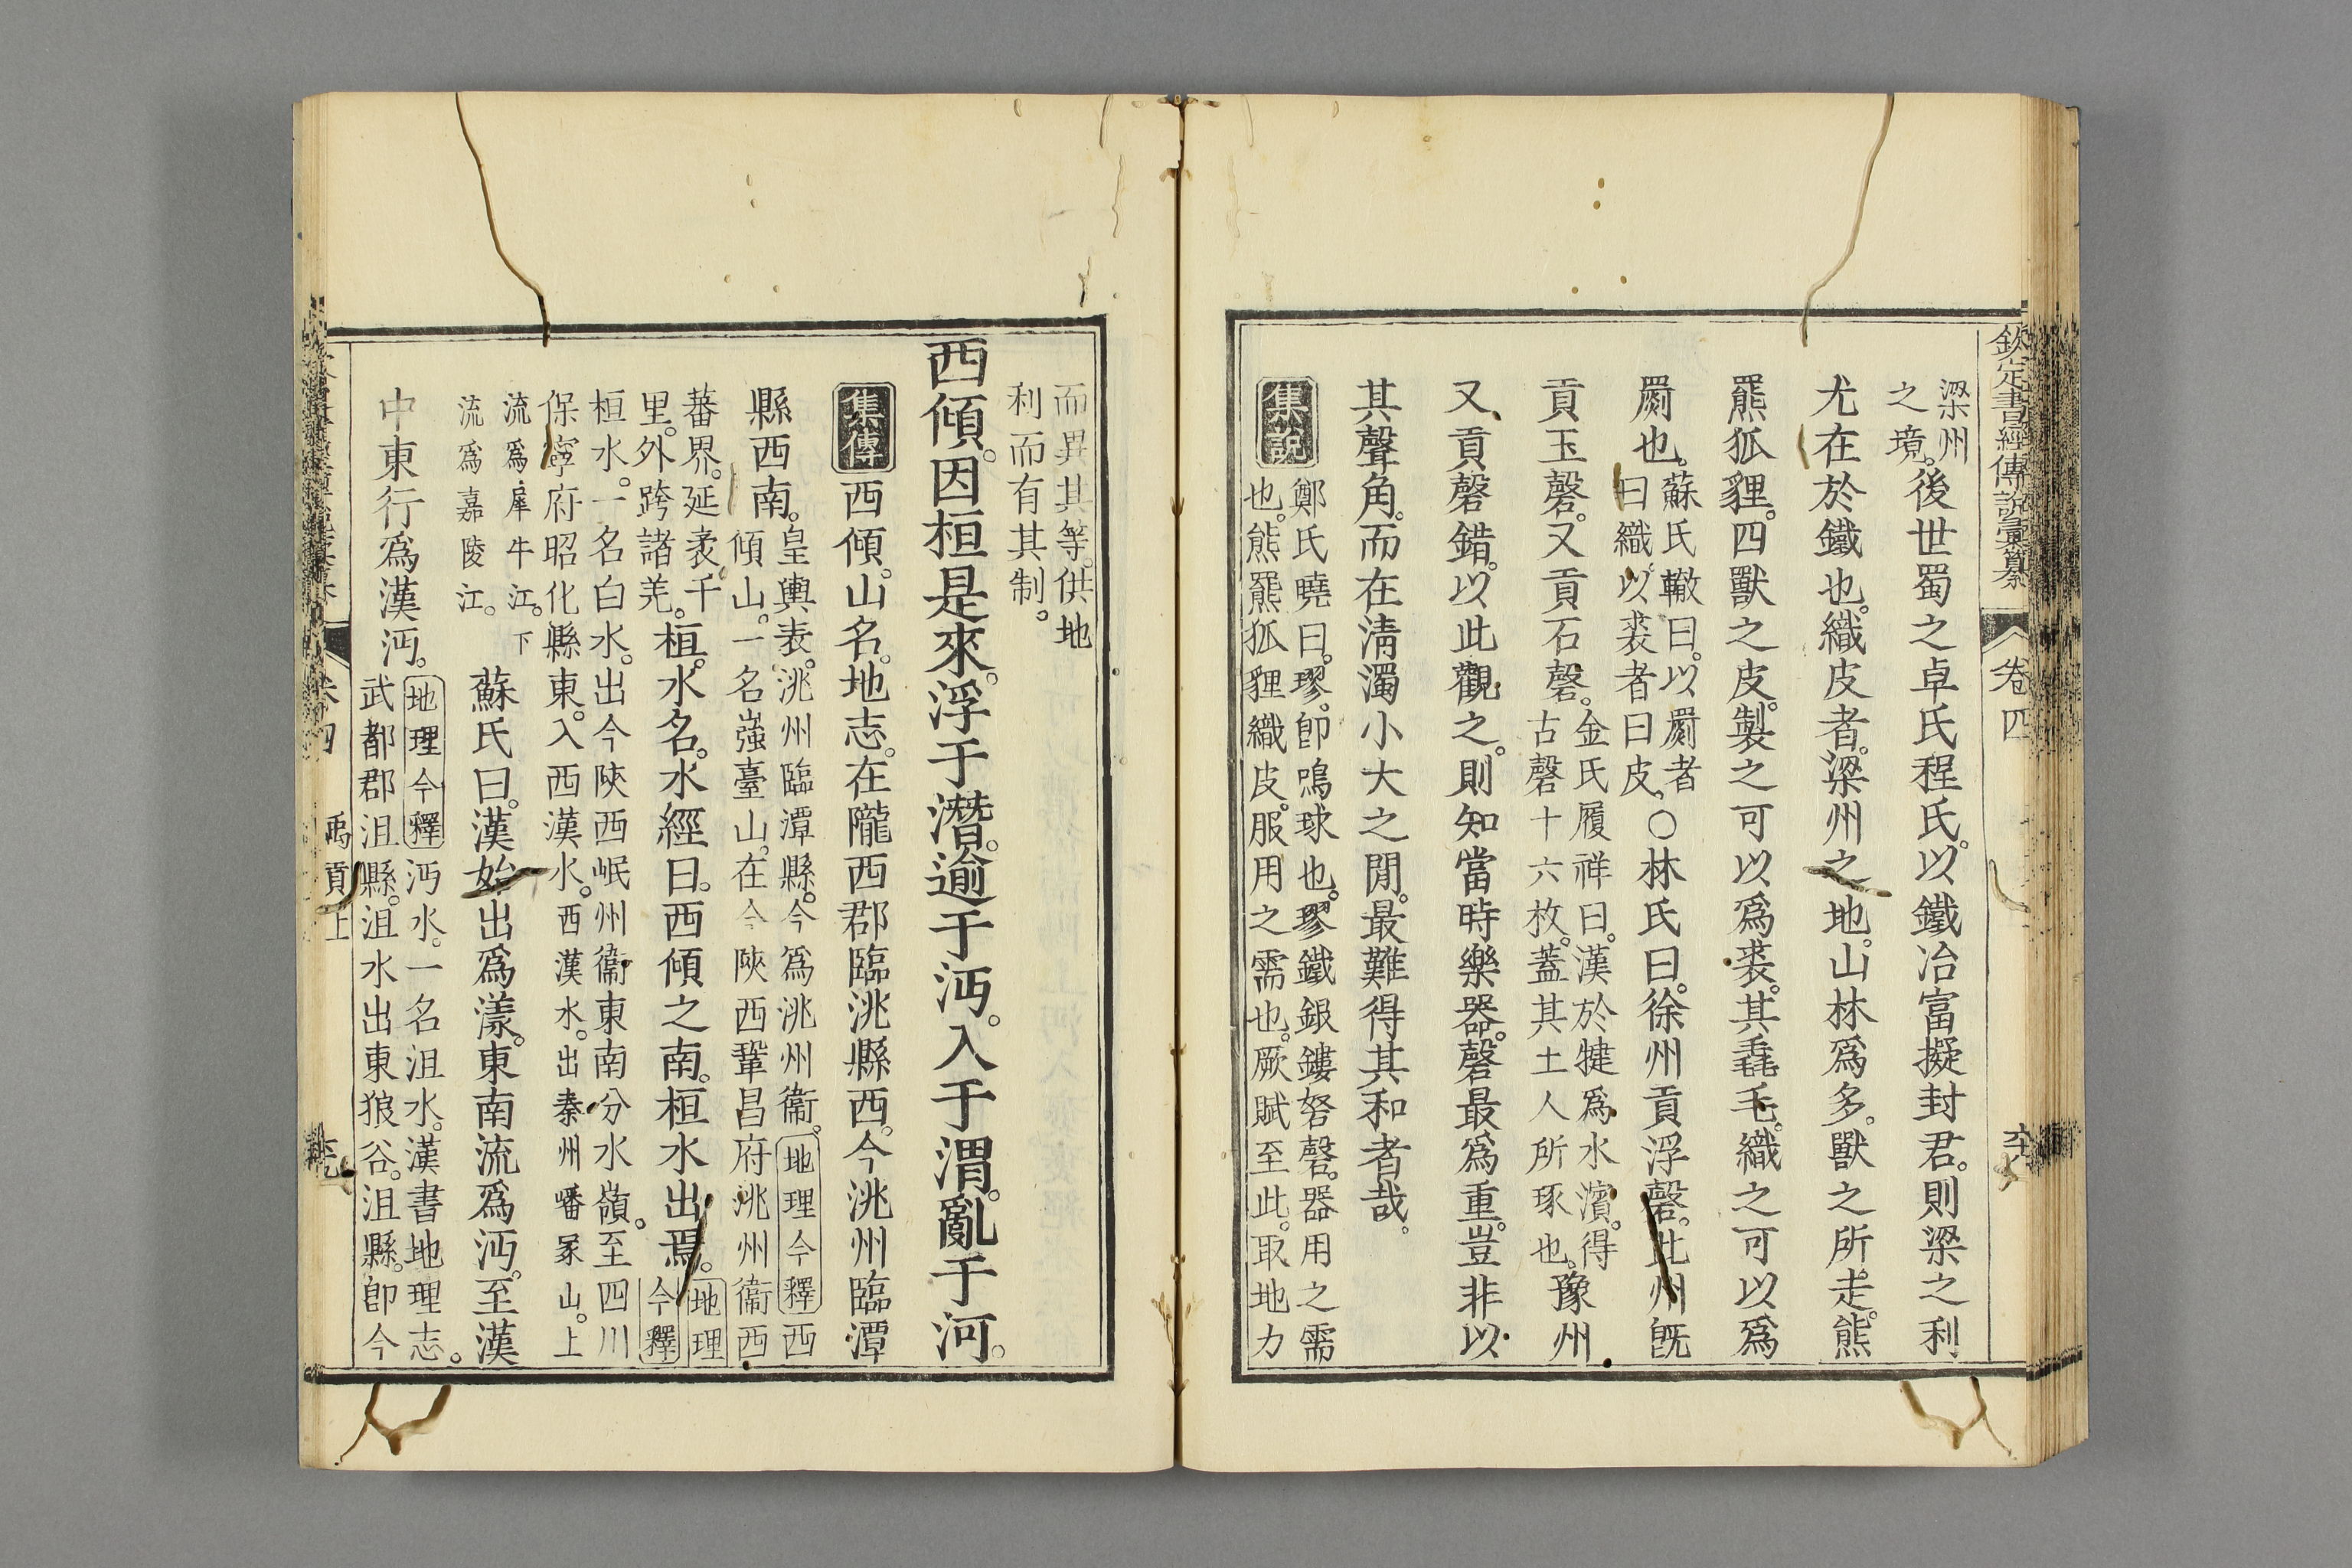 欽定書經傳說彙纂 卷四
梁州
之境。後世蜀之卓氏程氏。以鐵冶富擬封君。則梁之利
尤在於鐵也。織皮者。梁州之地。山林爲多。獸之所走。熊
羆狐貍。四獸之皮。製之可以爲裘。其毳毛。織之可以爲
罽也。蘇氏轍曰。以罽者
曰織。以裘者曰皮。○林氏曰。徐州貢浮磬。此州旣
貢玉磬。又貢石磬。金氏履祥曰。漢於犍爲水濱。得
古磬十六枚。蓋其土人所琢也。豫州
又貢磬錯。以此觀之。則知當時樂器。磬最爲重。豈非以
其聲角。而在淸濁小大之閒。最難得其和者哉。
集說
鄭氏曉曰。璆。卽鳴球也。璆鐵銀鏤砮磬。器用之需
也。熊羆狐貍織皮。服用之需也。厥賦至此。取地力
而異其等。供地
利而有其制。
西傾。因桓是來。浮于潛。逾于沔。入于渭。亂于河。
集傳
西傾。山名。地志。在隴西郡臨洮縣西。今洮州臨潭
縣西南。皇輿表。洮州臨潭縣。今爲洮州衞。地理今釋西
傾山。一名嵹臺山。在今陝西鞏昌府洮州衞西
蕃界。延袤千
里。外跨諸羌。桓。水名。水經曰。西傾之南。桓水出焉。地理
今釋
桓水。一名白水。出今陝西岷州衞東南分水嶺。至四川
保寧府昭化縣東。入西漢水。西漢水。出秦州嶓冢山。上
流爲犀牛江。下
流爲嘉陵江。蘇氏曰。漢始出爲漾。東南流爲沔。至漢
中東行爲漢沔。地理今釋沔水。一名沮水。漢書地理志。
武都郡沮縣。沮水出東狼谷。沮縣。卽今
卷四 禹貢上